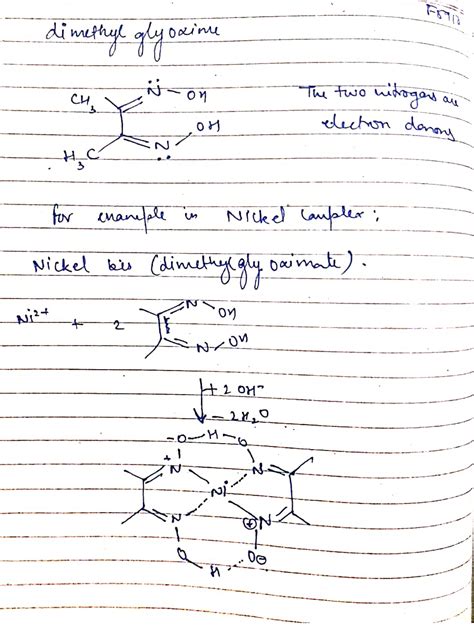 dimethyl glyoxime
CH3 N̈ – OH
H3C N̈ OH
The two nitrogens are
electron donors
for example in Nickel Complex;
Nickel bis (dimethylglyoximate).
Ni2+ + 2 N OH
N – OH
+ 2 OH-
- 2H2O
-O – H – O
+N N
Ni
N ⊕N
O H O⊖